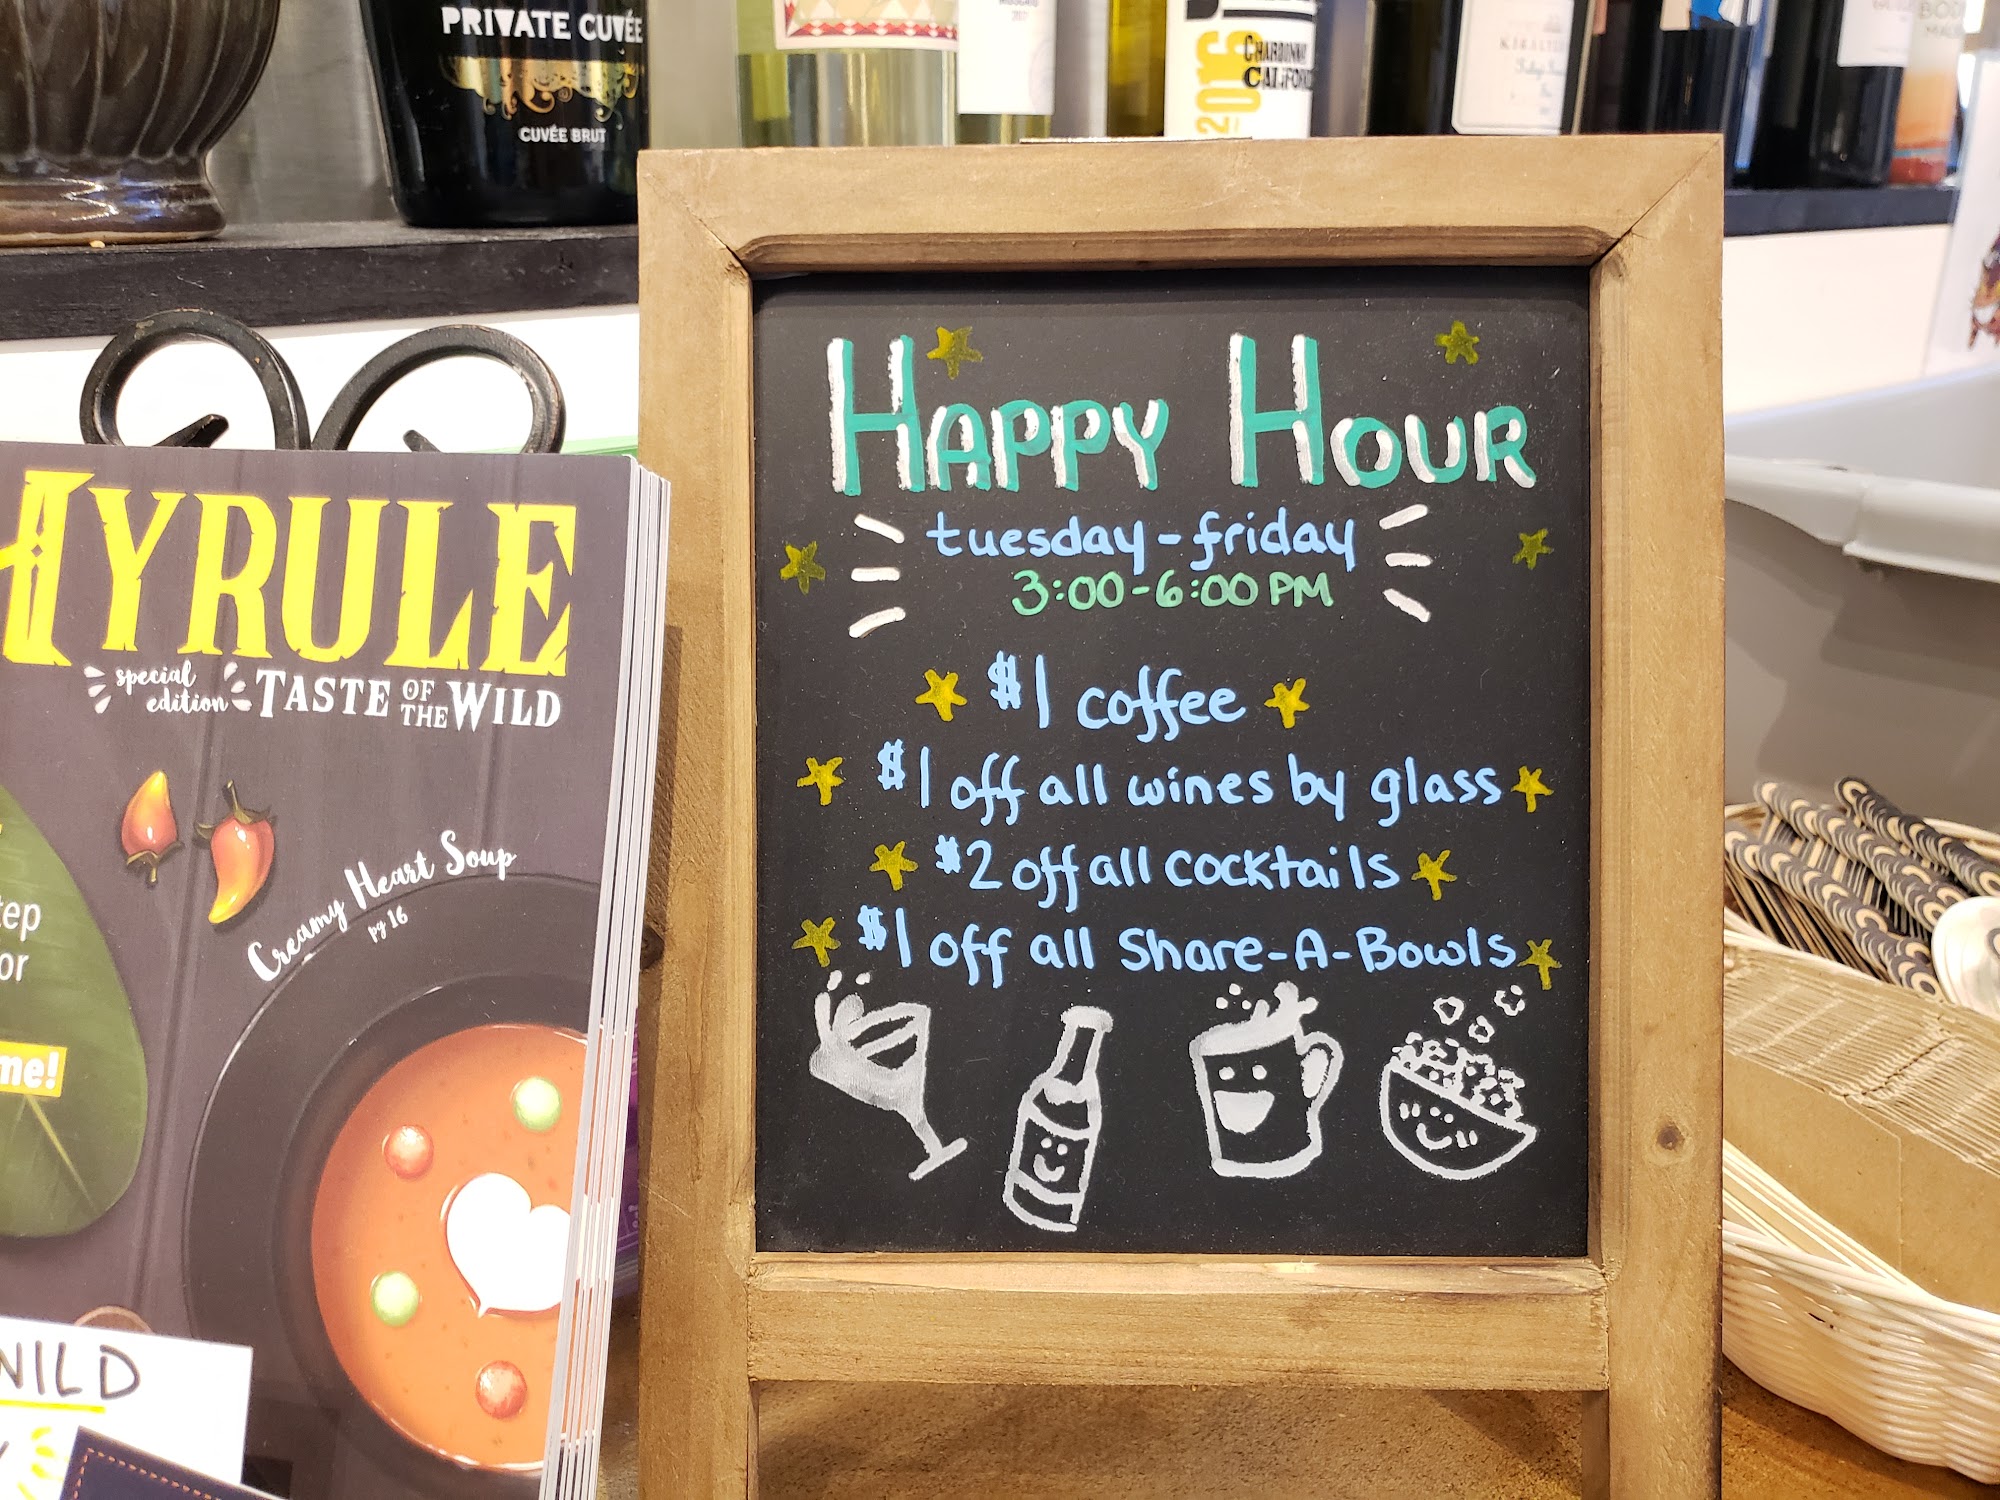 PRIVATE CUVÉE
CUVÉE BRUT
2016
CHARDONNAY
HYRULE
special
edition
TASTE OF THE WILD
Creamy Heart Soup
pg 16
me!
HAPPY HOUR
tuesday-friday
3:00-6:00 PM
$1 coffee
$1 off all wines by glass
$2 off all cocktails
$1 off all Share-A-Bowls